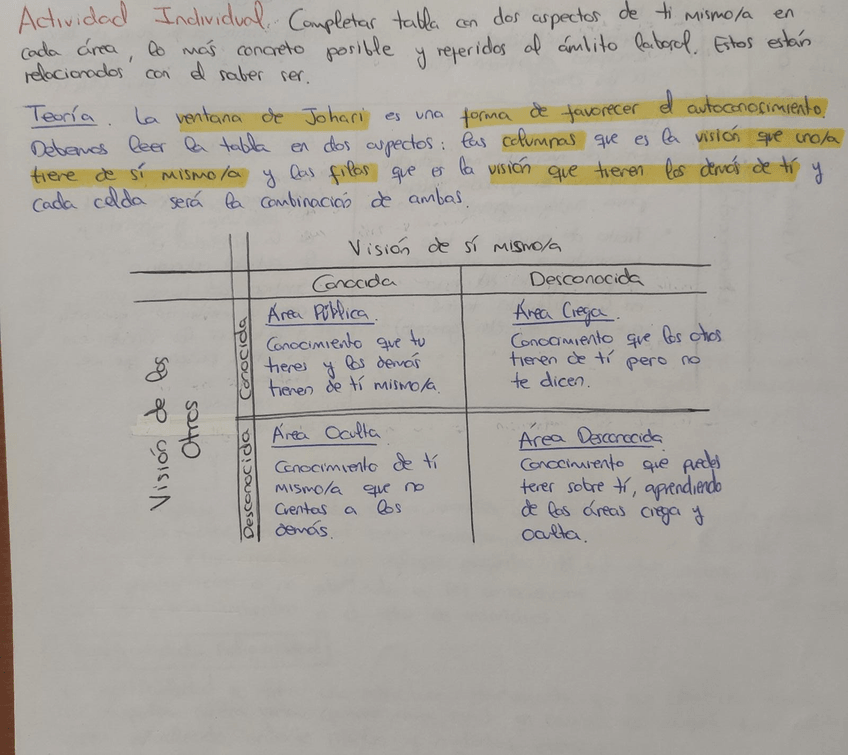 Actividad Individual. Completar tabla con dos aspectos de ti mismo/a en
cada área, lo más concreto posible y referidos al ámbito laboral. Estos están
relacionados con el saber ser.
Teoría. La ventana de Johari es una forma de favorecer el autoconocimiento.
Debemos leer la tabla en dos aspectos: las columnas que es la visión que uno/a
tiene de sí mismo/a y las filas que es la visión que tienen los demás de tí y
cada celda será la combinación de ambas.
Visión de sí mismo/a
Conocida
Desconocida
Visión de los
Otros
Conocida
Área Pública.
Conocimiento que tu
tienes y los demás
tienen de tí mismo/a.
Área Ciega.
Conocimiento que los otros
tienen de tí pero no
te dicen.
Desconocida
Área Oculta.
Conocimiento de tí
mismo/a que no
cuentas a los
demás.
Área Desconocida
Conocimiento que puedes
tener sobre tí, aprendiendo
de las áreas ciega y
oculta.